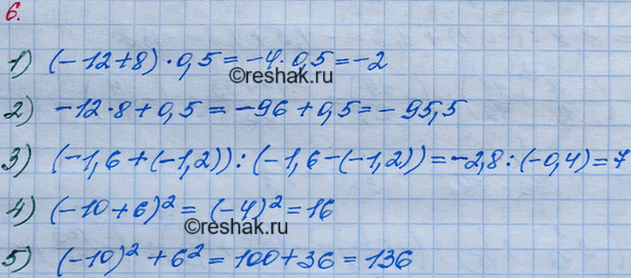 6.
1) (-12+8)·0,5=-4·0,5=-2
©reshak.ru
2) -12·8+0,5=-96+0,5=-95,5
3) (-1,6+(-1,2)):(-1,6-(-1,2))=-2,8:(-0,4)=7
4) (-10+6)²=(-4)²=16
©reshak.ru
5) (-10)²+6²=100+36=136